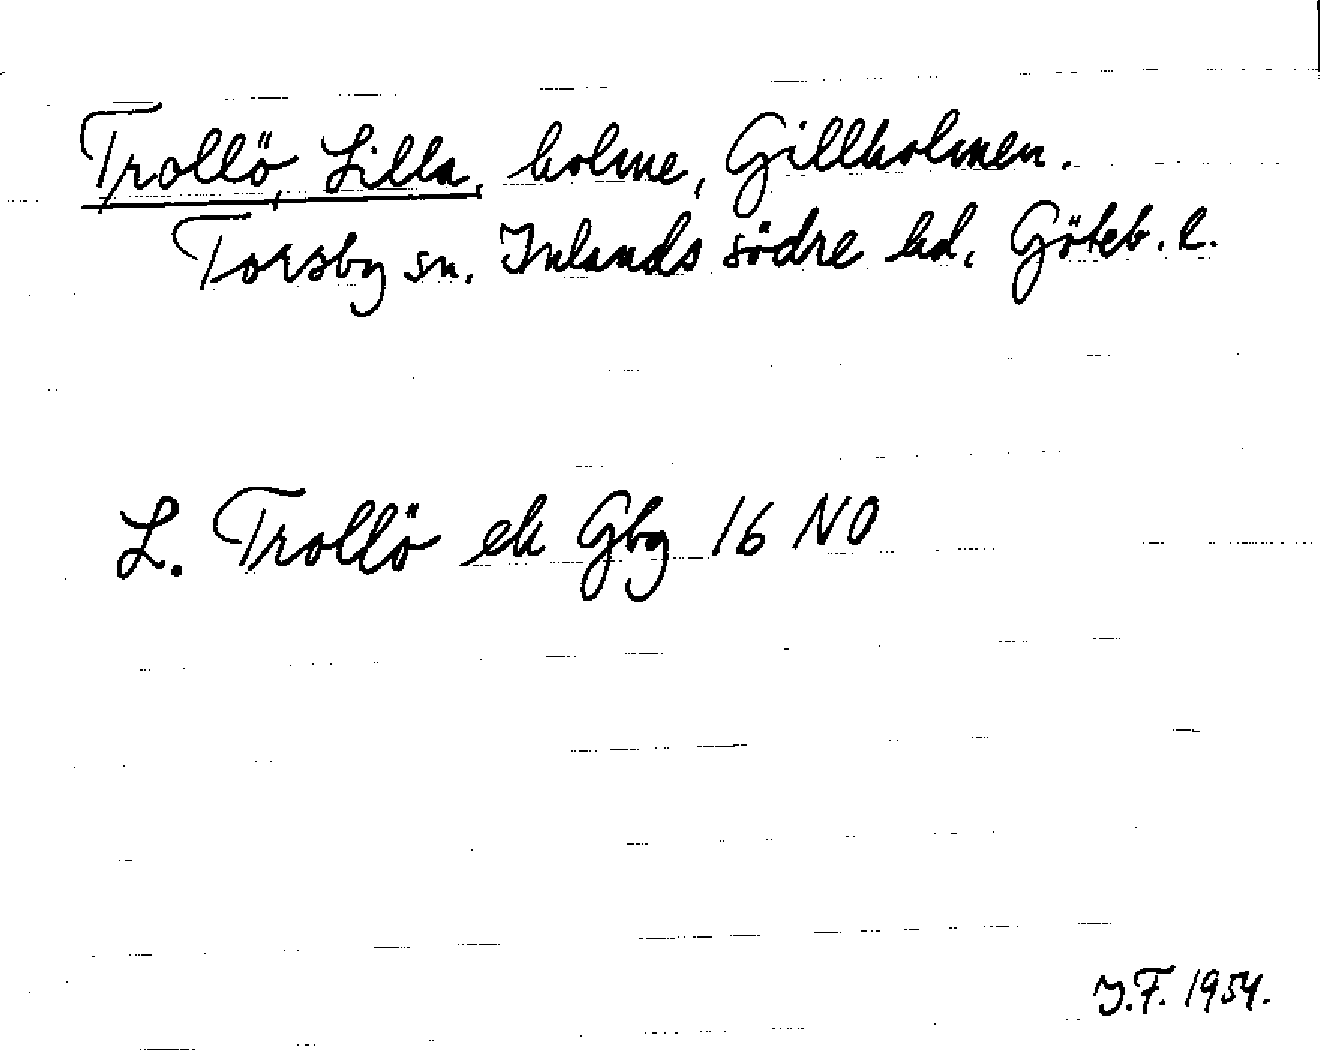 Trollö, Lilla, holme, Gillholmen.
Torsby sn. Inlands södre hd, Göteb. l.
L. Trollö ek Gbg 16 NO
J.F. 1954.